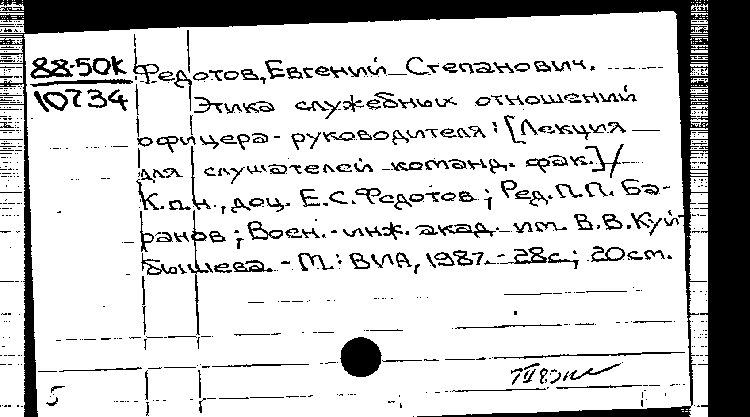 88-50к
10734
Федотов, Евгений Степанович.
Этика служебных отношений
офицера-руководителя: [Лекция
для слушателей команд. фак.]/
К.п.н., доц. Е.С.Федотов; Ред. П.П. Ба-
ранов; Воен.-инж. акад. им. В.В.Куй-
бышева. - М.: ВИА, 1987. - 28с.; 20см.
5